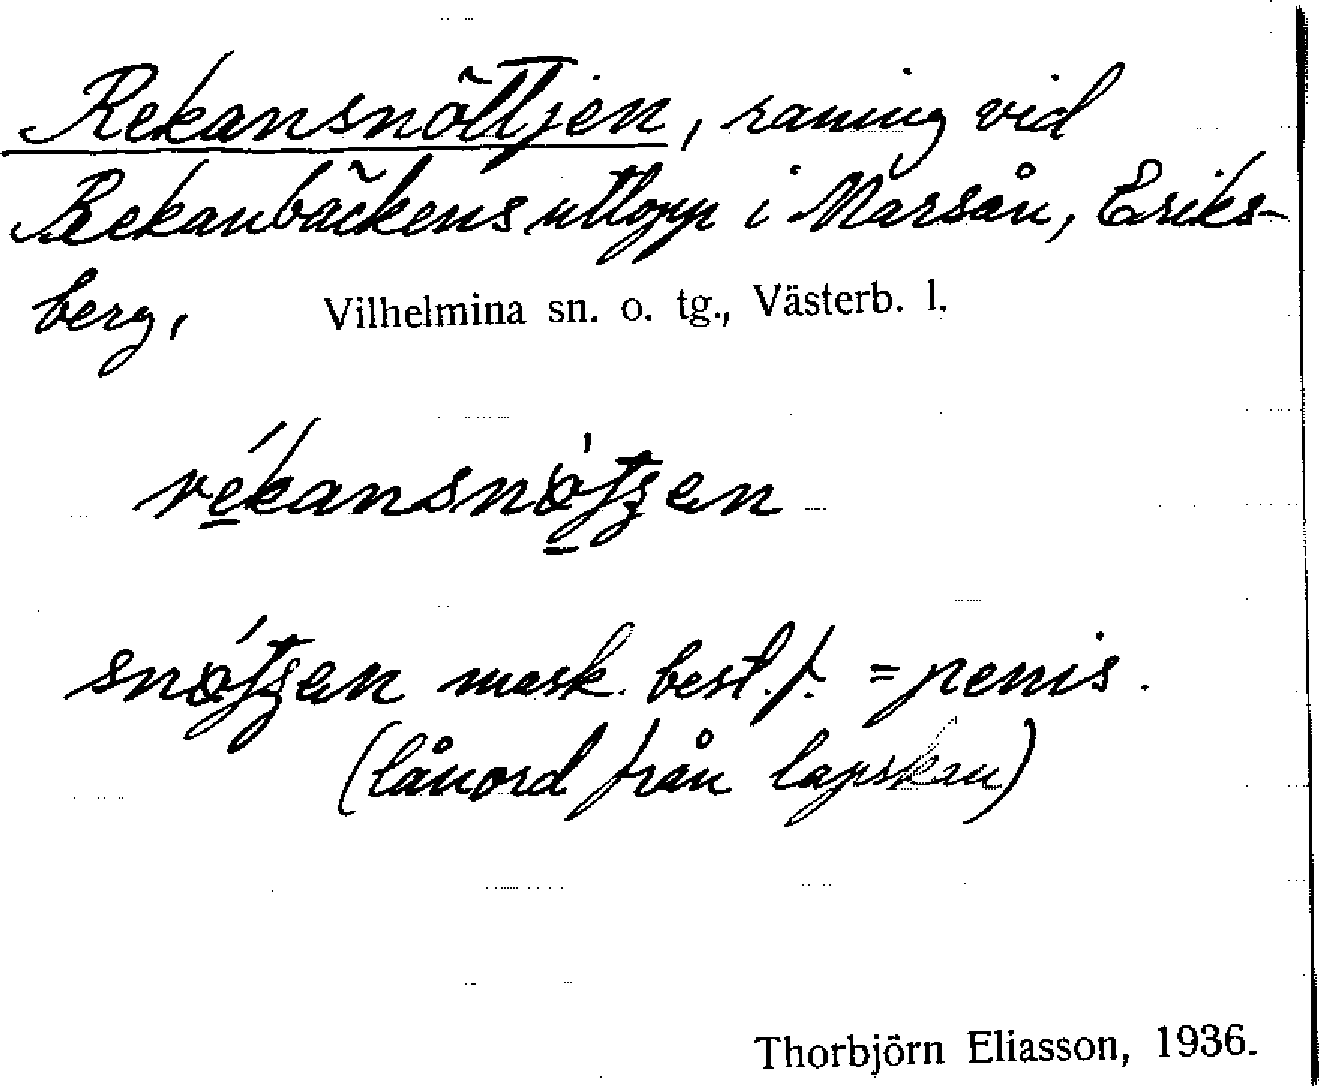 Rekansnöttjen, raning vid
Rekanbäckens utlopp i Marsån, Eriks-
berg, Vilhelmina sn. o. tg., Västerb. l.
mask. best. f. = penis.
(lånord från lapskan)
Thorbjörn Eliasson, 1936.